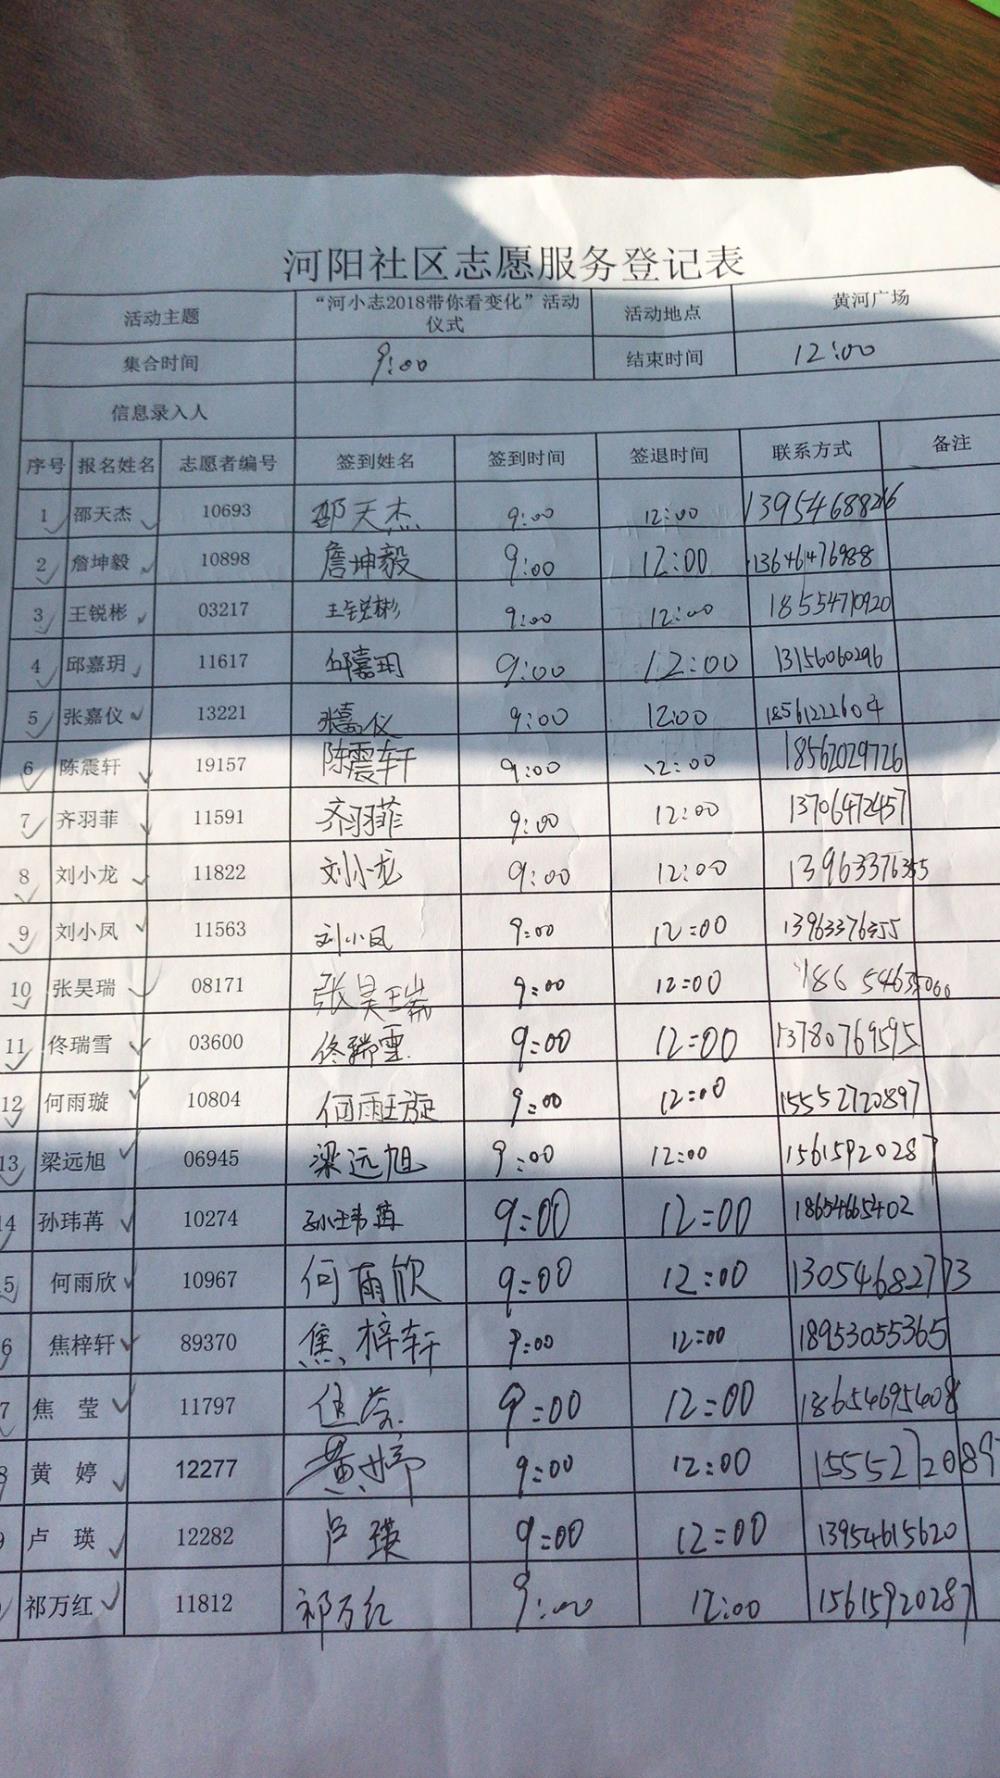 河阳社区志愿服务登记表
活动主题 “河小志2018带你看变化”活动仪式 活动地点 黄河广场
集合时间 9:00 结束时间 12:00
信息录入人
序号 报名姓名 志愿者编号 签到姓名 签到时间 签退时间 联系方式 备注
1 邵天杰 10693 邵天杰 9:00 12:00
2 詹坤毅 10898 詹坤毅 9:00 12:00 13646476988
3 王锐彬 03217 王锐彬 9:00 12:00 18554710920
4 邱嘉玥 11617 邱嘉玥 9:00 12:00 13156060296
5 张嘉仪 13221 张嘉仪 9:00 12:00 18561222604
6 陈震轩 19157 陈震轩 9:00 12:00 18562029726
7 齐羽菲 11591 齐羽菲 9:00 12:00 13706472457
8 刘小龙 11822 刘小龙 9:00 12:00 13963376355
9 刘小凤 11563 刘小凤 9:00 12:00 13963376355
10 张昊瑞 08171 张昊瑞 9:00 12:00
11 佟瑞雪 03600 佟瑞雪 9:00 12:00 13780769595
12 何雨璇 10804 何雨璇 9:00 12:00 15552720897
13 梁远旭 06945 梁远旭 9:00 12:00 15615920287
4 孙玮苒 10274 孙玮苒 9:00 12:00 18654665402
5 何雨欣 10967 何雨欣 9:00 12:00 13054682773
6 焦梓轩 89370 焦梓轩 9:00 12:00 18953055365
7 焦 莹 11797 9:00 12:00 18654695408
8 黄 婷 12277 黄婷 9:00 12:00 1555272089
9 卢 瑛 12282 卢瑛 9:00 12:00 13954615620
祁万红 11812 祁万红 9:00 12:00 15615920287